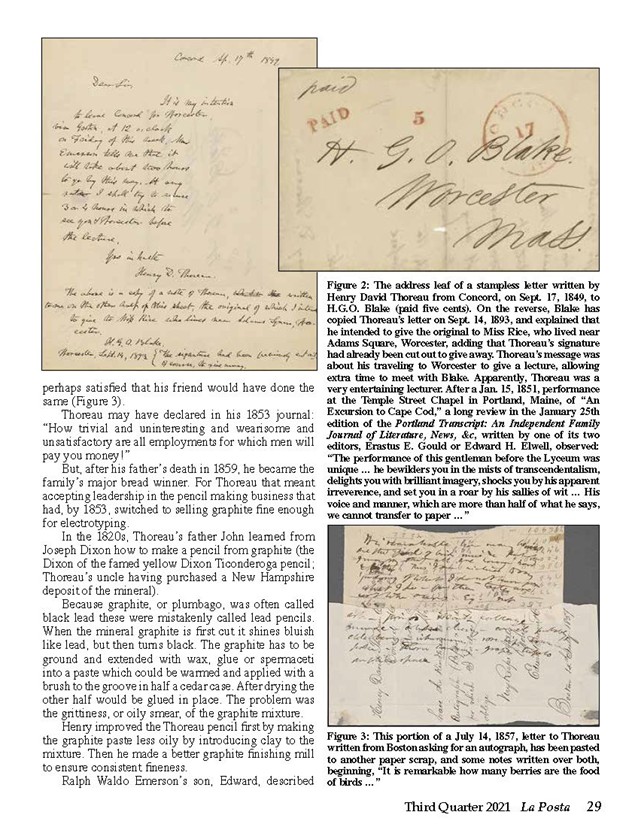 Concord Sep. 17th 1849
Dear Sir,
It is my intention
to leave Concord for Worcester,
via Groton, at 12 o'clock
on Friday of this week. Mr
Emerson tells me that it
will take about two hours
to go by this way. At any
rate I shall try to secure
3 or 4 hours in which to
see you & Worcester before
the lecture.
Yrs in haste
Henry D. Thoreau.
The above is a copy of a note of Thoreau, written
to me on the other half of this sheet, the original of which I intend
to give to Miss Rice who lives near Adams Square, Wor-
cester.
H. G. O. Blake.
Worcester, Sept. 14, 1893
paid
PAID
5
17
H. G. O. Blake.
Worcester
Mass.
Figure 2: The address leaf of a stampless letter written by
Henry David Thoreau from Concord, on Sept. 17, 1849, to
H.G.O. Blake (paid five cents). On the reverse, Blake has
copied Thoreau's letter on Sept. 14, 1893, and explained that
he intended to give the original to Miss Rice, who lived near
Adams Square, Worcester, adding that Thoreau's signature
had already been cut out to give away. Thoreau's message was
about his traveling to Worcester to give a lecture, allowing
extra time to meet with Blake. Apparently, Thoreau was a
very entertaining lecturer. After a Jan. 15, 1851, performance
at the Temple Street Chapel in Portland, Maine, of "An
Excursion to Cape Cod," a long review in the January 25th
edition of the Portland Transcript: An Independent Family
Journal of Literature, News, &c, written by one of its two
editors, Erastus E. Gould or Edward H. Elwell, observed:
"The performance of this gentleman before the Lyceum was
unique … he bewilders you in the mists of transcendentalism,
delights you with brilliant imagery, shocks you by his apparent
irreverence, and set you in a roar by his sallies of wit … His
voice and manner, which are more than half of what he says,
we cannot transfer to paper …"
perhaps satisfied that his friend would have done the
same (Figure 3).
Thoreau may have declared in his 1853 journal:
"How trivial and uninteresting and wearisome and
unsatisfactory are all employments for which men will
pay you money!"
But, after his father's death in 1859, he became the
family's major bread winner. For Thoreau that meant
accepting leadership in the pencil making business that
had, by 1853, switched to selling graphite fine enough
for electrotyping.
In the 1820s, Thoreau's father John learned from
Joseph Dixon how to make a pencil from graphite (the
Dixon of the famed yellow Dixon Ticonderoga pencil;
Thoreau's uncle having purchased a New Hampshire
deposit of the mineral).
Because graphite, or plumbago, was often called
black lead these were mistakenly called lead pencils.
When the mineral graphite is first cut it shines bluish
like lead, but then turns black. The graphite has to be
ground and extended with wax, glue or spermaceti
into a paste which could be warmed and applied with a
brush to the groove in half a cedar case. After drying the
other half would be glued in place. The problem was
the grittiness, or oily smear, of the graphite mixture.
Henry improved the Thoreau pencil first by making
the graphite paste less oily by introducing clay to the
mixture. Then he made a better graphite finishing mill
to ensure consistent fineness.
Ralph Waldo Emerson's son, Edward, described
Figure 3: This portion of a July 14, 1857, letter to Thoreau
written from Boston asking for an autograph, has been pasted
to another paper scrap, and some notes written over both,
beginning, "It is remarkable how many berries are the food
of birds …"
Third Quarter 2021 La Posta 29